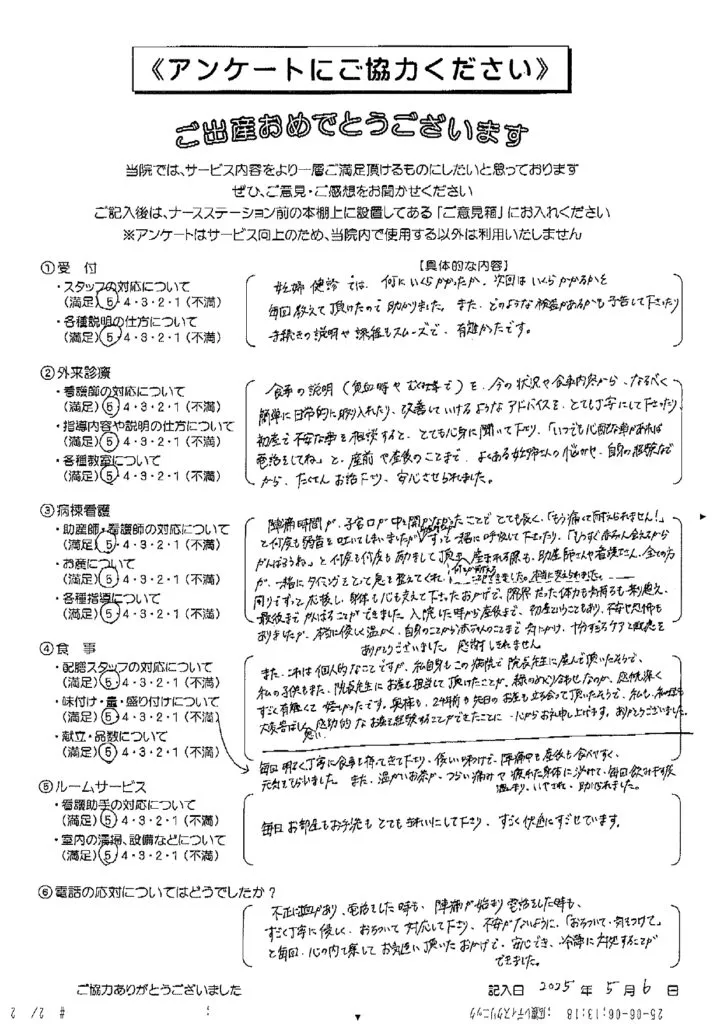 《アンケートにご協力ください》
ご出産おめでとうございます
当院では、サービス内容をより一層ご満足頂けるものにしたいと思っております
ぜひ、ご意見・ご感想をお聞かせください
ご記入後は、ナースステーション前の本棚上に設置してある「ご意見箱」にお入れください
※アンケートはサービス向上のため、当院内で使用する以外は利用いたしません
①受 付
【具体的な内容】
・スタッフの対応について
(満足) 5・4・3・2・1 (不満)
・各種説明の仕方について
(満足) 5・4・3・2・1 (不満)
妊婦健診では、何にいくらかかったか、次回はいくらかかるかを
毎回教えて頂けたので助かりました。また、どのような検査があるかも予告して下さったり
手続きの説明や誘導もスムーズで、有難かったです。
②外来診療
・看護師の対応について
(満足) 5・4・3・2・1 (不満)
・指導内容や説明の仕方について
(満足) 5・4・3・2・1 (不満)
・各種教室について
(満足) 5・4・3・2・1 (不満)
食事の説明(貧血時やむくみ等で)を、今の状況や食事内容から、なるべく
簡単に日常的に取り入れたり、改善していけるようなアドバイスを、とても丁寧にして下さったり
初産で不安な事を相談すると、とても心身に聞いて下さり、「いつでも心配な事があれば
電話をしてね」と、産前や産後のことまで、よくある妊婦さんの悩みや、自身の経験など
から、たくさんお話下さり、安心させられました。
③病棟看護
・助産師・看護師の対応について
(満足) 5・4・3・2・1 (不満)
・お産について
(満足) 5・4・3・2・1 (不満)
・各種指導について
(満足) 5・4・3・2・1 (不満)
陣痛時間が、子宮口が中々開かなかったことでとても長く、「もう痛くて耐えられません!」
と何度も弱音を吐いてしまいましたが、ずっと一緒に呼吸して下さったり、「もうすぐ赤ちゃん会えるから
がんばろうね」と何度も何度も励まして頂き、産まれる際も、助産師さんや看護師さん、全ての方
が、一緒にタイミングをとって息を整えてくれ、
周りでずっと応援し、身体も心も支えて下さったおかげで、限界だった体力も気持ちも乗り越え、
最後までがんばることができました。入院した時から産後まで、初産ということもあり、不安や恐怖も
ありましたが、本当に優しく温かく、自身のことから赤ちゃんのことまで気にかけ、十分すぎるケアと配慮を
ありがとうございました。感謝しきれません。
④食 事
・配膳スタッフの対応について
(満足) 5・4・3・2・1 (不満)
・味付け・量・盛り付けについて
(満足) 5・4・3・2・1 (不満)
・献立・品数について
(満足) 5・4・3・2・1 (不満)
また、これは個人的なことですが、私自身もこの病院で院長先生に産んで頂いたそうで、
私の子供もまた、院長先生にお産を担当して頂けたことが、縁のめぐり合わせなのか、感慨深く
すごく有難くて嬉しかったです。
感動的なお産を経験することができたことに、心からお礼申し上げます。ありがとうございました。
毎回明るく丁寧に食事を持ってきて下さり、優しい味わけで、陣痛中も産後も食べやすく、
元気をもらいました。また、温かいお茶が、つらい痛みや疲れた身体に染みて、毎回飲みやすく
温まり、いやされ、助けられました。
⑤ルームサービス
・看護助手の対応について
(満足) 5・4・3・2・1 (不満)
・室内の清掃、設備などについて
(満足) 5・4・3・2・1 (不満)
毎日お部屋もお手洗もとてもきれいにして下さり、すごく快適にすごせています。
⑥電話の応対についてはどうでしたか?
不正出血があり、電話をした時も、陣痛が始まり電話をした時も、
すごく丁寧に優しく、おちついて対応して下さり、不安がないように、「おちついて・気をつけて」
と毎回、心の内で察してお気遣い頂いたおかげで、安心でき、冷静に対処することが
できました。
ご協力ありがとうございました
記入日 2025 年 5 月 6 日
25-06-06;13:18 ;広瀬レディスクリニック
; # 2/ 2